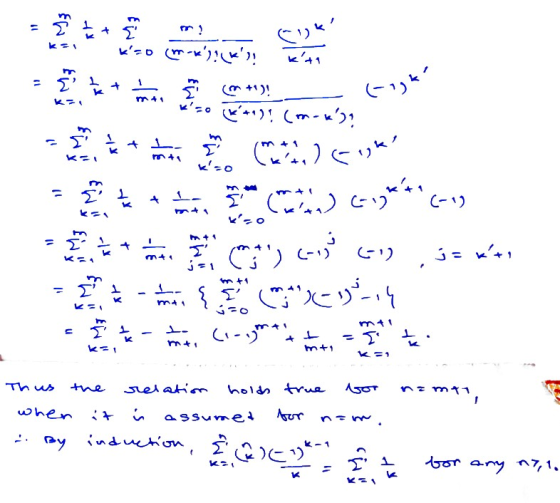 = \sum_{k=1}^{m} \frac{1}{k} + \sum_{k'=0}^{m} \frac{m!}{(m-k')!(k')!} \frac{(-1)^{k'}}{k'+1}
= \sum_{k=1}^{m} \frac{1}{k} + \frac{1}{m+1} \sum_{k'=0}^{m} \frac{(m+1)!}{(k'+1)! (m-k')!} (-1)^{k'}
= \sum_{k=1}^{m} \frac{1}{k} + \frac{1}{m+1} \sum_{k'=0}^{m} \binom{m+1}{k'+1} (-1)^{k'}
= \sum_{k=1}^{m} \frac{1}{k} + \frac{1}{m+1} \sum_{k'=0}^{m} \binom{m+1}{k'+1} (-1)^{k'+1} (-1)
= \sum_{k=1}^{m} \frac{1}{k} + \frac{1}{m+1} \sum_{j=1}^{m+1} \binom{m+1}{j} (-1)^{j} (-1) , j = k'+1
= \sum_{k=1}^{m} \frac{1}{k} - \frac{1}{m+1} \{ \sum_{j=0}^{m+1} \binom{m+1}{j} (-1)^{j} - 1 \}
= \sum_{k=1}^{m} \frac{1}{k} - \frac{1}{m+1} (1-1)^{m+1} + \frac{1}{m+1} = \sum_{k=1}^{m+1} \frac{1}{k} .
Thus the relation holds true for n = m+1,
when it is assumed for n = m.
∴ By induction, \sum_{k=1}^{n} \binom{n}{k} \frac{(-1)^{k-1}}{k} = \sum_{k=1}^{n} \frac{1}{k} for any n ≥ 1.